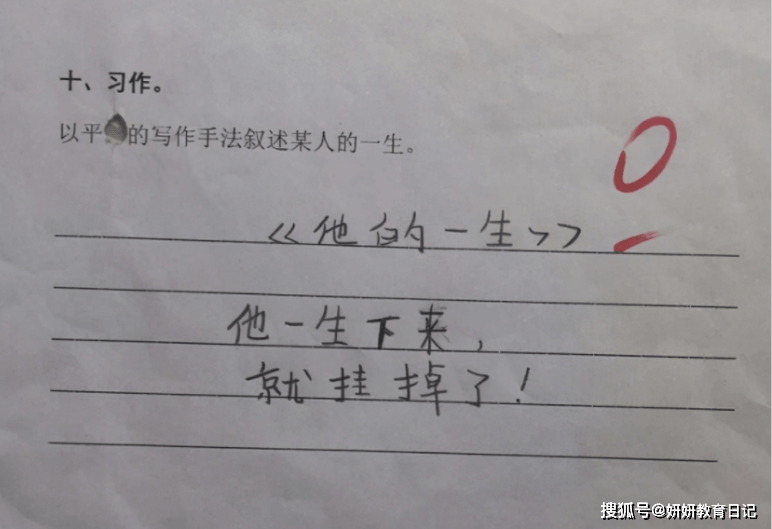 十、习作。
以平的写作手法叙述某人的一生。
0
《他的一生》
他一生下来，
就挂掉了！
搜狐号@妍妍教育日记